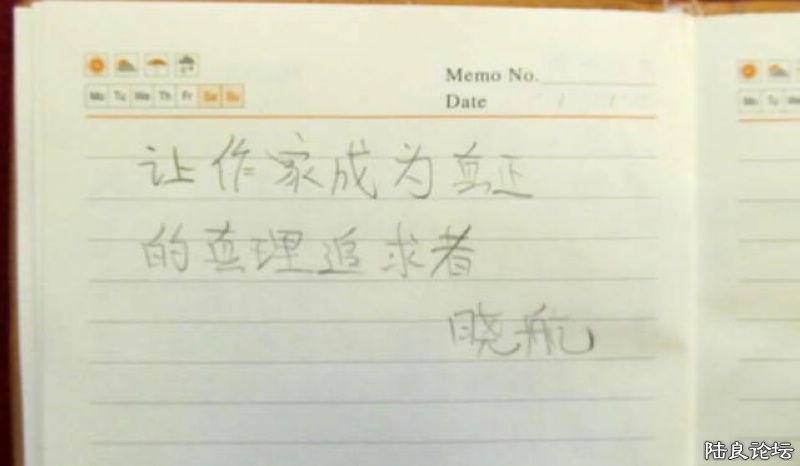 Memo No.
Date
Mo Tu We Th Fr Sa Su
让作家成为真正
的真理追求者
晓航
Mo Tu We
陆良论坛